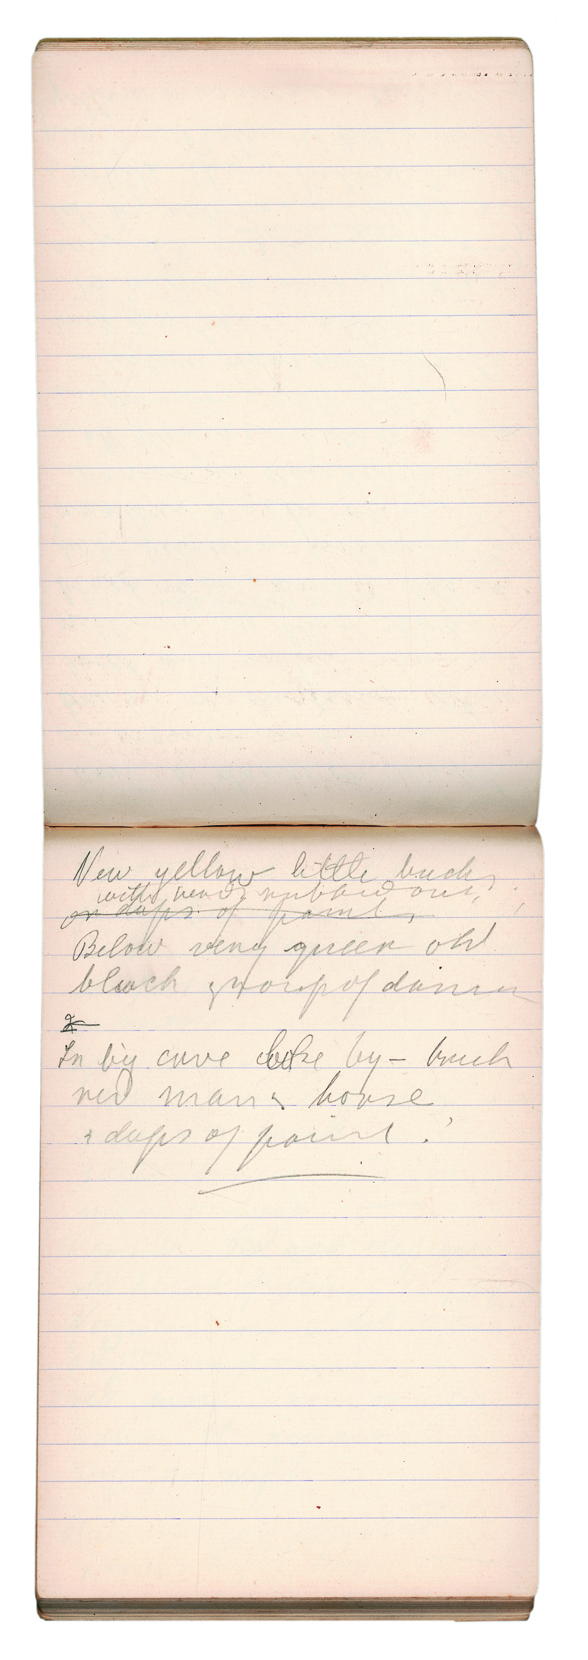 New yellow little bucks
with red rubbed out,
or daps of paint,
Below very queer old
black group of dancers
In big cave like by – buck
red man & horse
+ daps of paint.